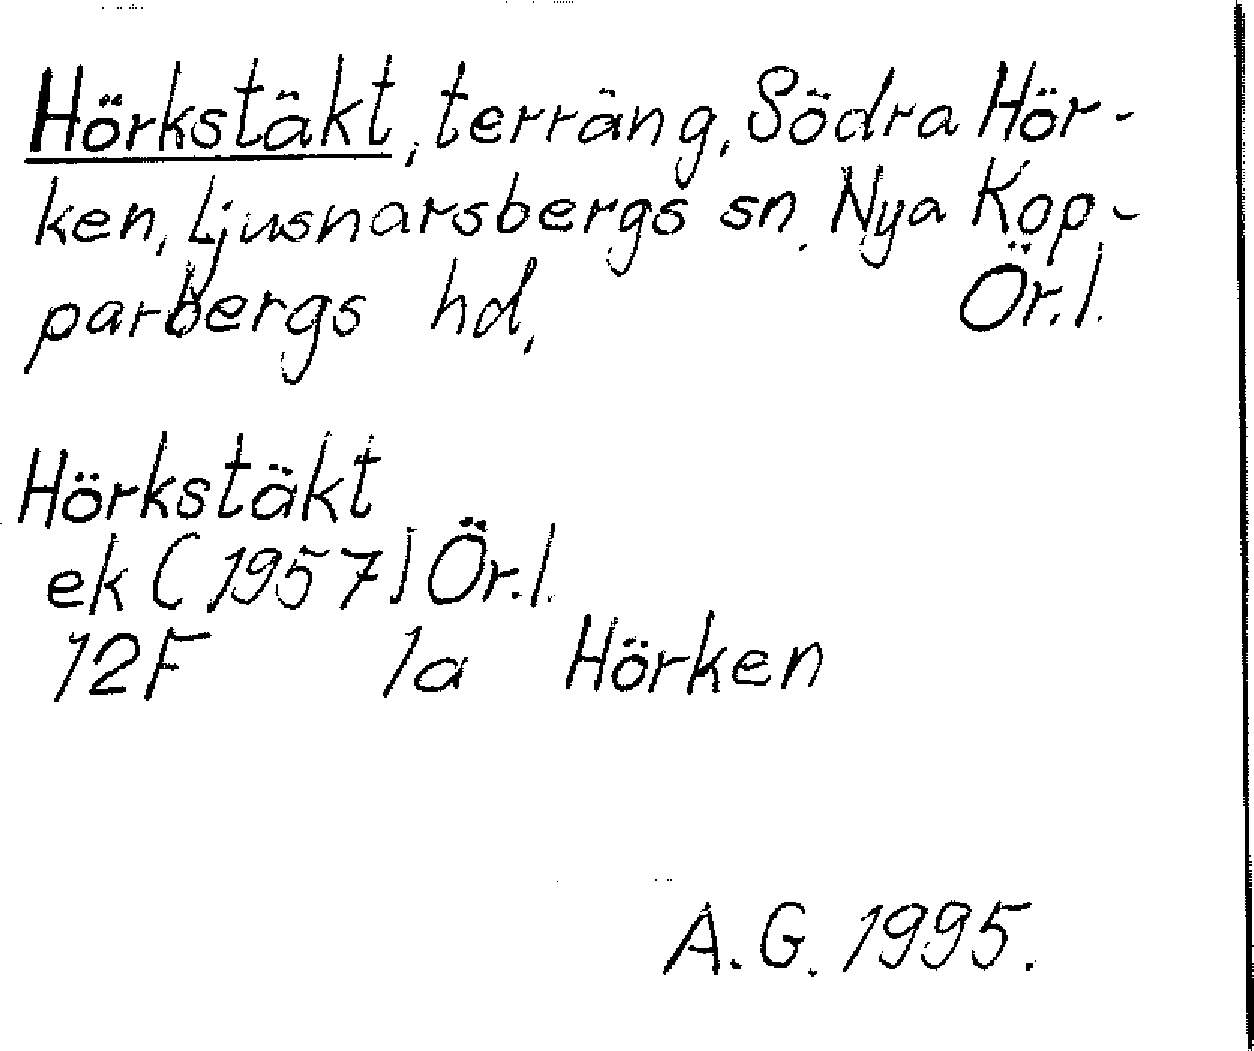 Hörkstäkt, terräng, Södra Hör-
ken, Ljusnarsbergs sn. Nya Kop-
parbergs hd, Ör.l.
Hörkstäkt
ek (1957) Ör.l.
12F 1a Hörken
A.G. 1995.